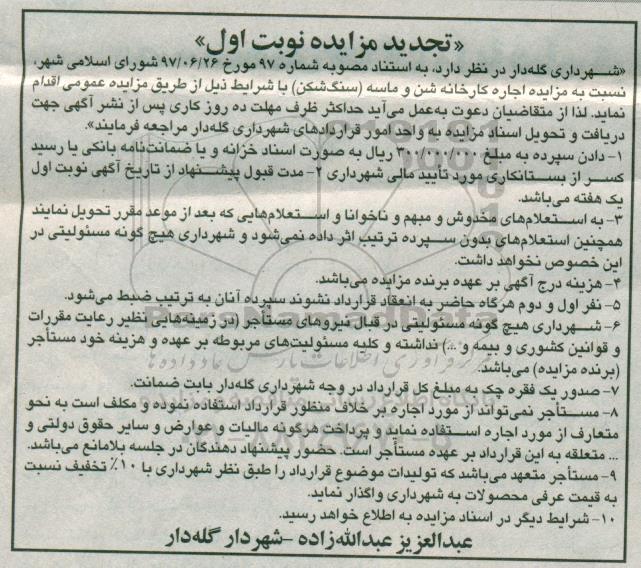 «تجدید مزایده نوبت اول»
«شهرداری گله‌دار در نظر دارد، به استناد مصوبه شماره ۹۷ مورخ ۹۷/۰۶/۲۶ شورای اسلامی شهر،
نسبت به مزایده اجاره کارخانه شن و ماسه (سنگ‌شکن) با شرایط ذیل از طریق مزایده عمومی اقدام
نماید. لذا از متقاضیان دعوت به‌عمل می‌آید حداکثر ظرف مهلت ده روز کاری پس از نشر آگهی جهت
دریافت و تحویل اسناد مزایده به واحد امور قراردادهای شهرداری گله‌دار مراجعه فرمایند».
۱- دادن سپرده به مبلغ ۳۰۰/۰۰۰/۰۰۰ ریال به صورت اسناد خزانه و یا ضمانت‌نامه بانکی یا رسید
کسر از بستانکاری مورد تأیید مالی شهرداری ۲- مدت قبول پیشنهاد از تاریخ آگهی نوبت اول
یک هفته می‌باشد.
۳- به استعلام‌های مخدوش و مبهم و ناخوانا و استعلام‌هایی که بعد از موعد مقرر تحویل نمایند
همچنین استعلام‌های بدون سپرده ترتیب اثر داده نمی‌شود و شهرداری هیچ گونه مسئولیتی در
این خصوص نخواهد داشت.
۴- هزینه درج آگهی بر عهده برنده مزایده می‌باشد.
۵- نفر اول و دوم هرگاه حاضر به انعقاد قرارداد نشوند سپرده آنان به ترتیب ضبط می‌شود.
۶- شهرداری هیچ گونه مسئولیتی در قبال نیروهای مستأجر (در زمینه‌هایی نظیر رعایت مقررات
و قوانین کشوری و بیمه و ...) نداشته و کلیه مسئولیت‌های مربوطه بر عهده و هزینه خود مستأجر
(برنده مزایده) می‌باشد.
۷- صدور یک فقره چک به مبلغ کل قرارداد در وجه شهرداری گله‌دار بابت ضمانت.
۸- مستأجر نمی‌تواند از مورد اجاره بر خلاف منظور قرارداد استفاده نموده و مکلف است به نحو
متعارف از مورد اجاره استفاده نماید و پرداخت هرگونه مالیات و عوارض و سایر حقوق دولتی و
... متعلقه به این قرارداد بر عهده مستأجر است. حضور پیشنهاد دهندگان در جلسه بلامانع می‌باشد.
۹- مستأجر متعهد می‌باشد که تولیدات موضوع قرارداد را طبق نظر شهرداری با ۱۰٪ تخفیف نسبت
به قیمت عرفی محصولات به شهرداری واگذار نماید.
۱۰- شرایط دیگر در اسناد مزایده به اطلاع خواهد رسید.
عبدالعزیز عبدالله‌زاده -شهردار گله‌دار
ParsNamadData